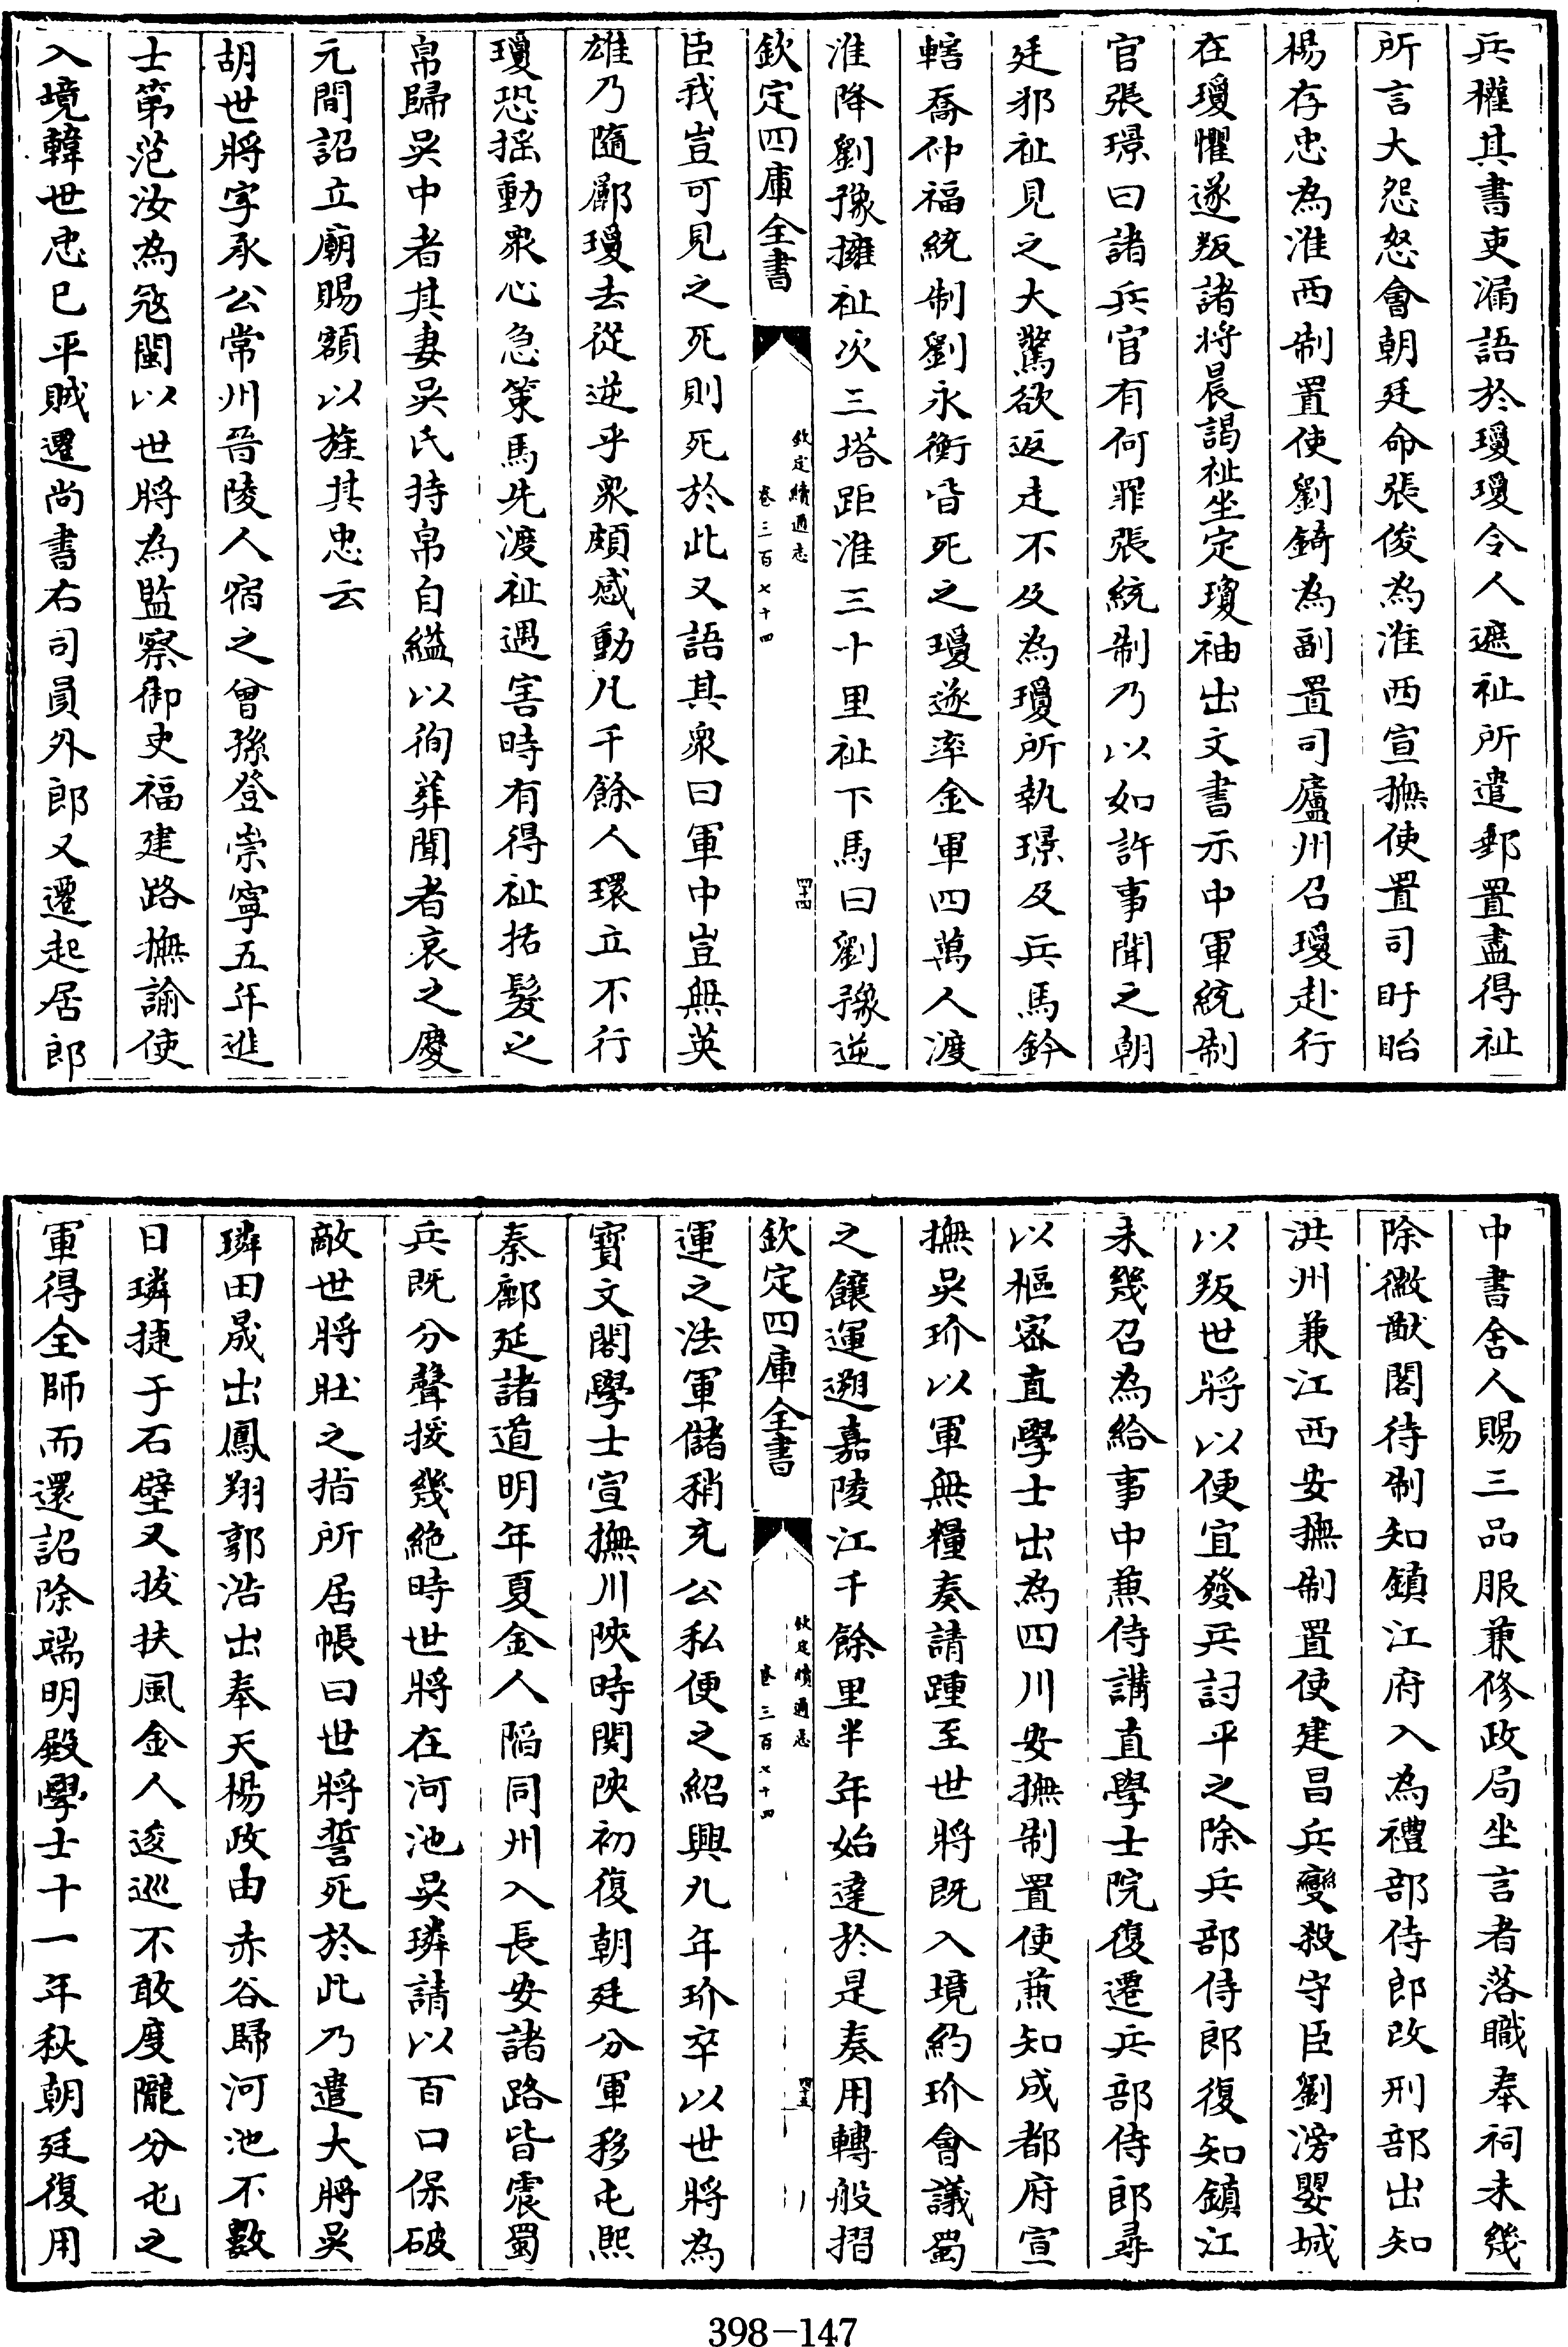 兵權其書吏漏語於瓊瓊令人遮祉所遣郵置盡得祉
所言大怨怒會朝廷命張俊為淮西宣撫使置司盱眙
楊存忠為淮西制置使劉錡為副置司廬州召瓊赴行
在瓊懼遂叛諸將晨謁祉坐定瓊袖出文書示中軍統制
官張璟曰諸兵官有何罪張統制乃以如許事聞之朝
廷邪祉見之大驚欲返走不及為瓊所執璟及兵馬鈐
轄喬仲福統制劉永衡皆死之瓊遂率金軍四萬人渡
淮降劉豫擁祉次三塔距淮三十里祉下馬曰劉豫逆
欽定四庫全書
欽定續通志
卷三百七十四
四十四
臣我豈可見之死則死於此又語其衆曰軍中豈無英
雄乃隨酈瓊去從逆乎衆頗感動凡千餘人環立不行
瓊恐搖動衆心急策馬先渡祉遇害時有得祉括髮之
帛歸吳中者其妻吳氏持帛自縊以徇葬聞者哀之慶
元間詔立廟賜額以旌其忠云
胡世將字承公常州晉陵人宿之曾孫登崇寧五年進
士第范汝為冦閩以世將為監察御史福建路撫諭使
入境韓世忠巳平賊遷尚書右司員外郎又遷起居郎
中書舍人賜三品服兼修政局坐言者落職奉祠未幾
除徽猷閣待制知鎮江府入為禮部侍郎改刑部出知
洪州兼江西安撫制置使建昌兵變殺守臣劉滂嬰城
以叛世將以便宜發兵討平之除兵部侍郎復知鎮江
未幾召為給事中兼侍講直學士院復遷兵部侍郎尋
以樞密直學士出為四川安撫制置使兼知成都府宣
撫吳玠以軍無糧奏請踵至世將既入境約玠會議蜀
之饟運遡嘉陵江千餘里半年始達於是奏用轉般摺
欽定四庫全書
欽定續通志
卷三百七十四
四十五
運之法軍儲稍充公私便之紹興九年玠卒以世將為
寶文閣學士宣撫川陝時関陝初復朝廷分軍移屯熙
秦鄜延諸道明年夏金人陷同州入長安諸路皆震蜀
兵既分聲援幾絶時世將在河池吳璘請以百口保破
敵世將壯之指所居帳曰世將誓死於此乃遣大將吳
璘田晟出鳳翔郭浩出奉天楊政由赤谷歸河池不數
日璘捷于石壁又拔扶風金人逡巡不敢度隴分屯之
軍得全師而還詔除端明殿學士十一年秋朝廷復用
398-147